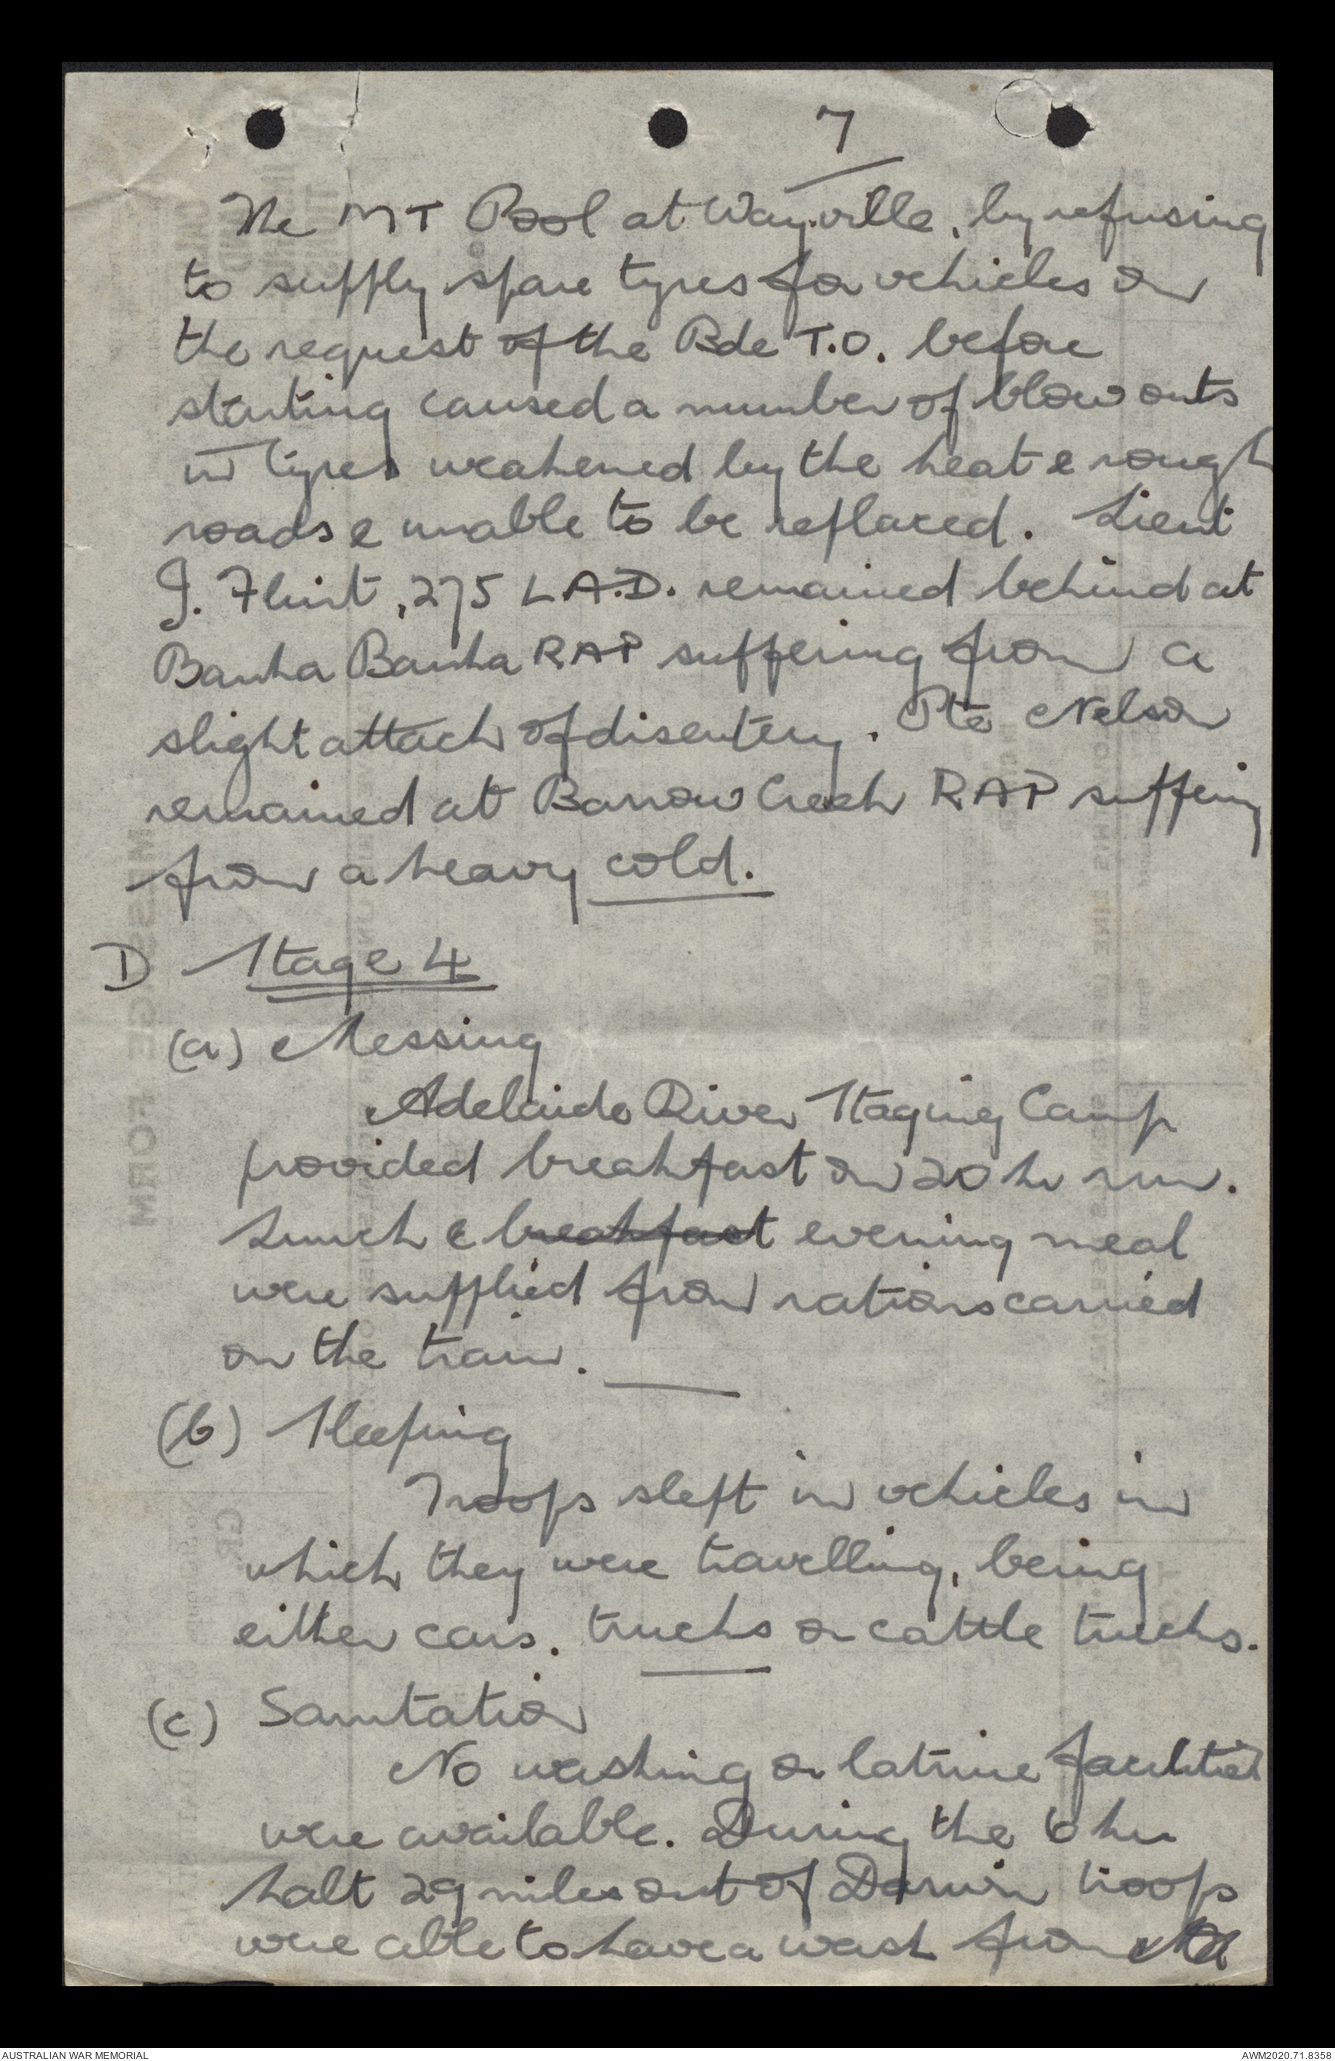 7
The MT Pool at Wayville, by refusing
to supply spare tyres for vehicles on
the request of the Bde T.O. before
starting caused a number of blow outs
in tyres weakened by the heat & rough
roads & unable to be replaced. Lieut
J. Flint, 275 L.A.D. remained behind at
Banka Banka RAP suffering from a
slight attack of disentery. Pte Nelson
remained at Barrow Creek RAP suffering
from a heavy cold.
D Stage 4
(a) Messing
Adelaide River Staging Camp
provided breakfast on 20 hr run.
Lunch & breakfast evening meal
were supplied from rations carried
on the train.
(b) Sleeping
Troops slept in vehicles in
which they were travelling, being
either cars, trucks or cattle trucks.
(c) Sanitation
No washing or latrine facilities
were available. During the 6 hr
halt 29 miles out of Darwin troops
were able to have a wash from
AUSTRALIAN WAR MEMORIAL
AWM2020.71.8358